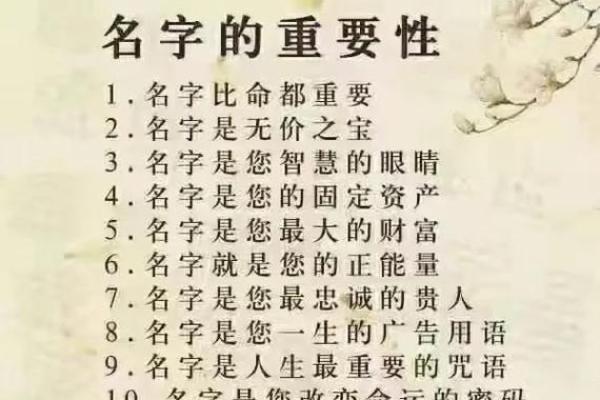 名字的重要性
1.名字比命都重要
2.名字是无价之宝
3.名字是您智慧的眼睛
4.名字是您的固定资产
5.名字是您最大的财富
6.名字就是您的正能量
7.名字是您最忠诚的贵人
8.名字是您一生的广告用语
9.名字是人生最重要的咒语
10.名字是您改变命运的密码